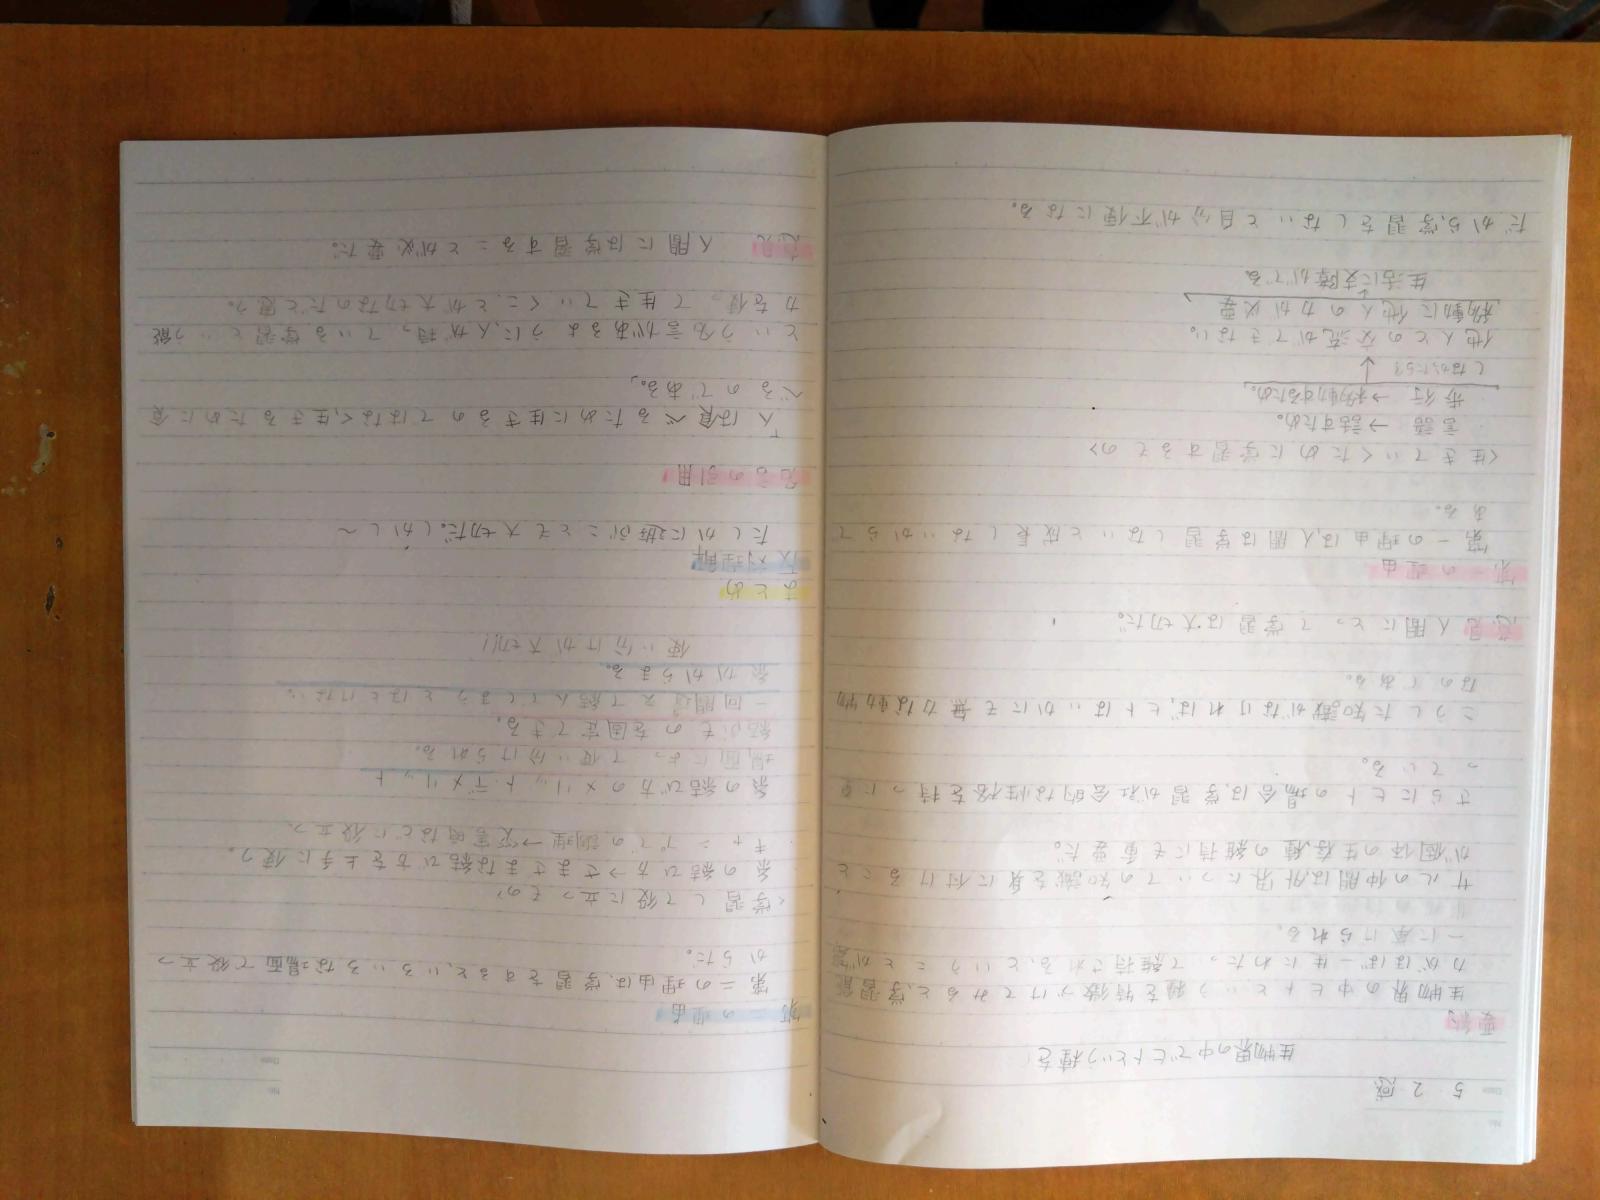 5 2 感
生物界の中でヒトという種を
要約
生物界の中ヒトという種を特徴づけてみると、学習能
力がほぼ一生にわたって維持される、ということが第
一に挙げられる。
サルの仲間は、外界についての知識を身に付けること
が個体の生存、種の維持にも重要だ。
さらにヒトの場合は、学習が社会的な性格を持つに
っている。
こうした知識がなければ、ヒトはいかにも無力な動物
なのである。
意見 人間にとって学習は大切だ。
第一の理由
第一の理由は、人間は学習しないと成長しないからで
ある。
<生きていくために学習するもの>
言語 → 話すため。
歩行 → 移動するため。
しなかったら?
他人との交流ができない。
移動に他人の力が必要
生活に支障がでる
だから、学習をしないと自分が不便になる。
第二の理由
第二の理由は、学習をすると、いろいろな場面で役立つ
からだ。
<学習して役に立つもの>
糸の結び方→さまざまな結び方を上手に使う。
キャンプでの調理→災害時などに役立つ。
糸の結び方のメリット・デメリット
場面によって使い分けられる。
結ぶものを固定できる。
一回間違えて結んでしまうとほどけない。
糸がからまる。
使い分けが大切!!
まとめ
反対理解
たしかに遊ぶことも大切だ。しかし〜
名言の引用
「人は食べるために生きるのではなく、生きるために食
べるのである。」
という名言があるように、人が持っている学習という能
力を使って生きていくことが大切なのだと思う。
意見 人間には学習することが必要だ。